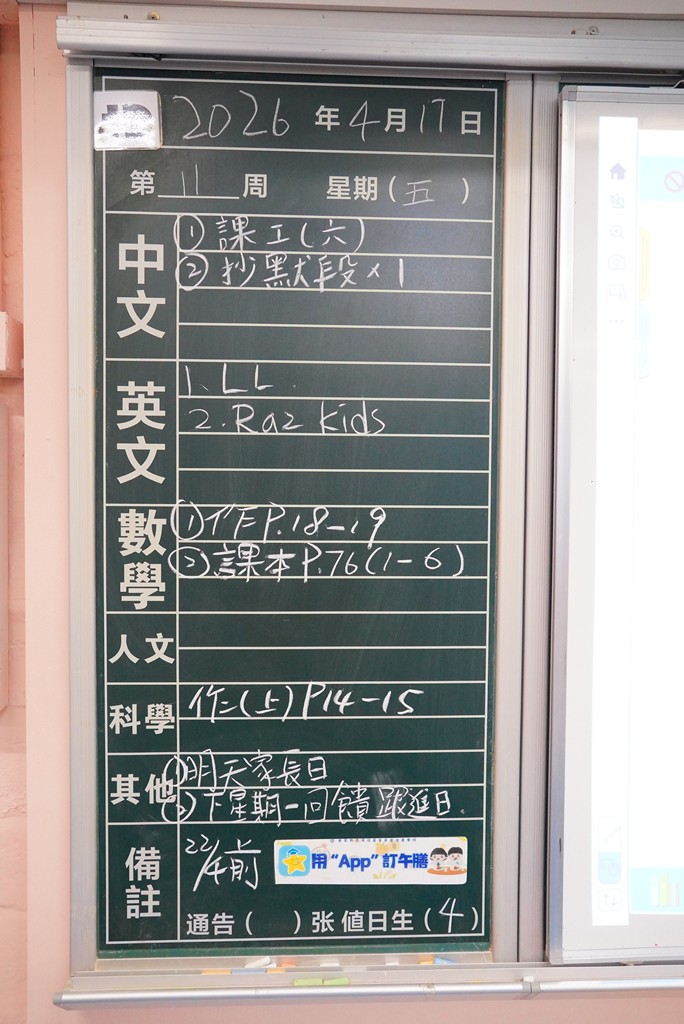 2026 年 4 月 17 日
第 11 周 星期(五)
中文
① 課工(六)
② 抄默段×1
英文
1. LL.
2. Raz Kids
數學
① 作P.18-19
② 課本P.76(1-6)
人文
科學
作二(上)P14-15
其他
① 明天家長日
② 下星期一回饋躍進日.
備註
22/4前
用“App”訂午膳
通告( )张 值日生(4)